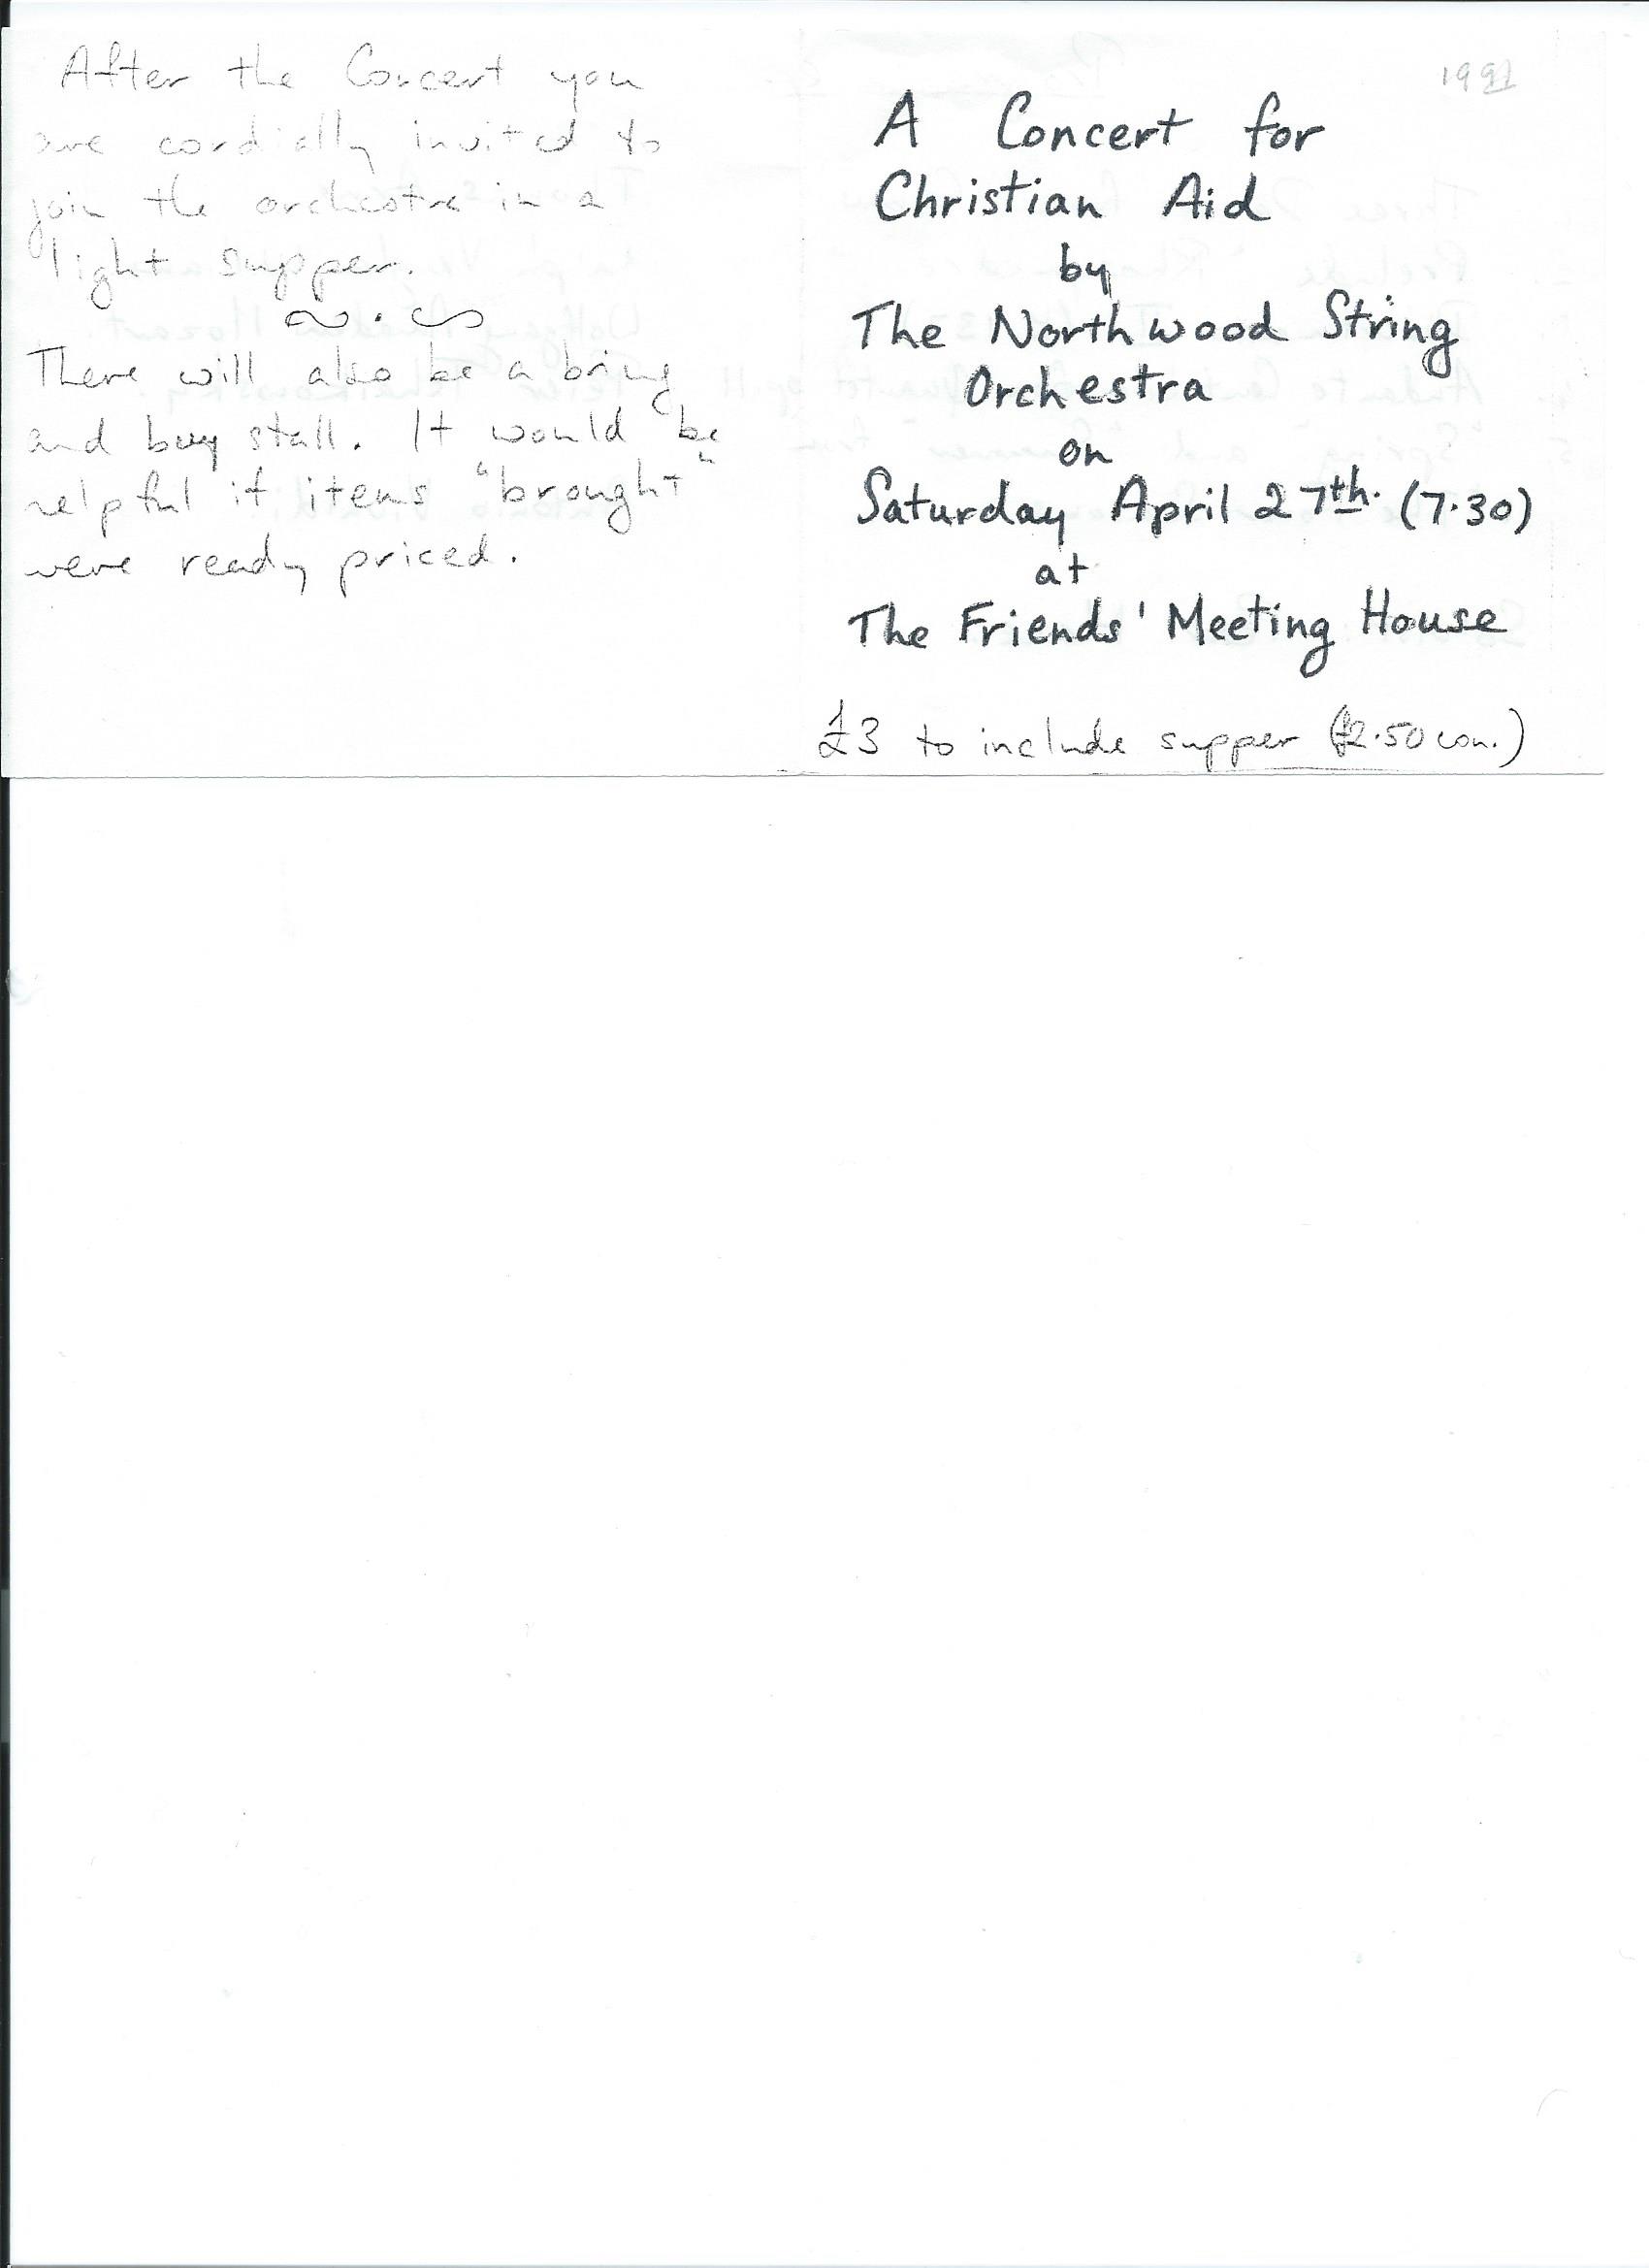 After the Concert you
are cordially invited to
join the orchestra in a
light supper.
There will also be a bring
and buy stall. It would be
helpful if items "brought"
were ready priced.
1991
A Concert for
Christian Aid
by
The Northwood String
Orchestra
on
Saturday April 27th. (7.30)
at
The Friends' Meeting House
£3 to include supper (£2.50 con.)